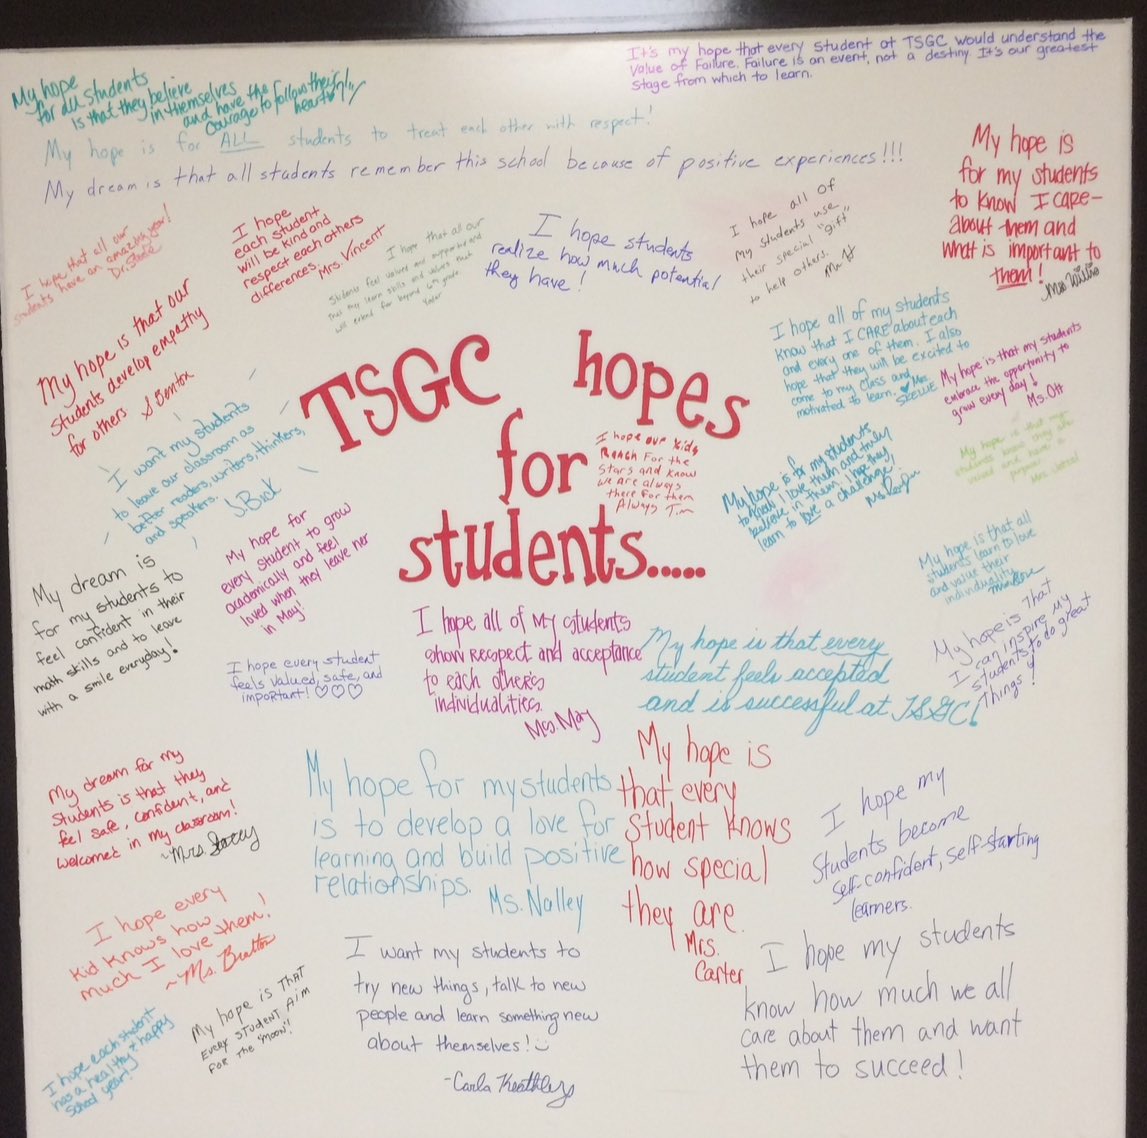 My hope
for all students
is that they believe
in themselves
and have the
courage to follow their
heart
It's my hope that every student at TSGC would understand the
value of Failure. Failure is an event, not a destiny. It's our greatest
stage from which to learn.
My hope is for ALL students to treat each other with respect!
My dream is that all students remember this school because of positive experiences!!!
My hope is
for my students
to know I care
about them and
what is important to
them!
Mrs. Willis
I hope that all our
students have an amazing year!
Dr.
I hope
each student
will be kind and
respect each others
differences.
Mrs. Vincent
I hope that all our
students feel valued and supported and
that my learn skills and values that
will extend far beyond 6th grade
I hope students
realize how much potential
they have!
I hope all of
my students use
their special "gift"
to help others.
My hope is that our
students develop empathy
for others
S Benton
I hope all of my students
know that I CARE about each
and every one of them. I also
hope that they will be excited to
come to my class and
motivated to learn.
Mrs.
My hope is that my students
embrace the opportunity to
grow every day!
Ms. Ott
TSGC hopes
for
students.....
I hope our kids
Reach For the
Stars and know
we are always
there for them
Always
I want my students
to leave our classroom as
better readers, writers, thinkers,
and speakers.
My hope is for my students
to know I love them and truly
believe in them. I hope they
learn to love a challenge
My hope is that my
students know they are
valued and have a
purpose!
Mrs.
My hope for
every student to grow
academically and feel
loved when they leave her
in May!
My dream is
for my students to
feel confident in their
math skills and to leave
with a smile everyday!
My hope is that all
students learn to love
and value their
individuality
I hope every student
feels valued, safe, and
important!
I hope all of my students
show respect and acceptance
to each others
individualities.
Mrs. May
My hope is that every
student feels accepted
and is successful at TSGC!
My hope is that
I can inspire my
students to do great
things!
My dream for my
students is that they
feel safe, confident, and
welcomed in my classroom!
~Mrs.
My hope for my students
is to develop a love for
learning and build positive
relationships.
Ms. Nalley
My hope is
that every
student knows
how special
they are.
Mrs.
Carter
I hope my
students become
self-confident, self-starting
learners.
I hope every
kid knows how
much I love them!
~Ms. Bratton
I want my students to
try new things, talk to new
people and learn something new
about themselves!
-Carla Keathley
I hope my students
know how much we all
care about them and want
them to succeed!
My hope is that
every student aim
for the "moon"!
I hope each student
has a healthy & happy
school year!